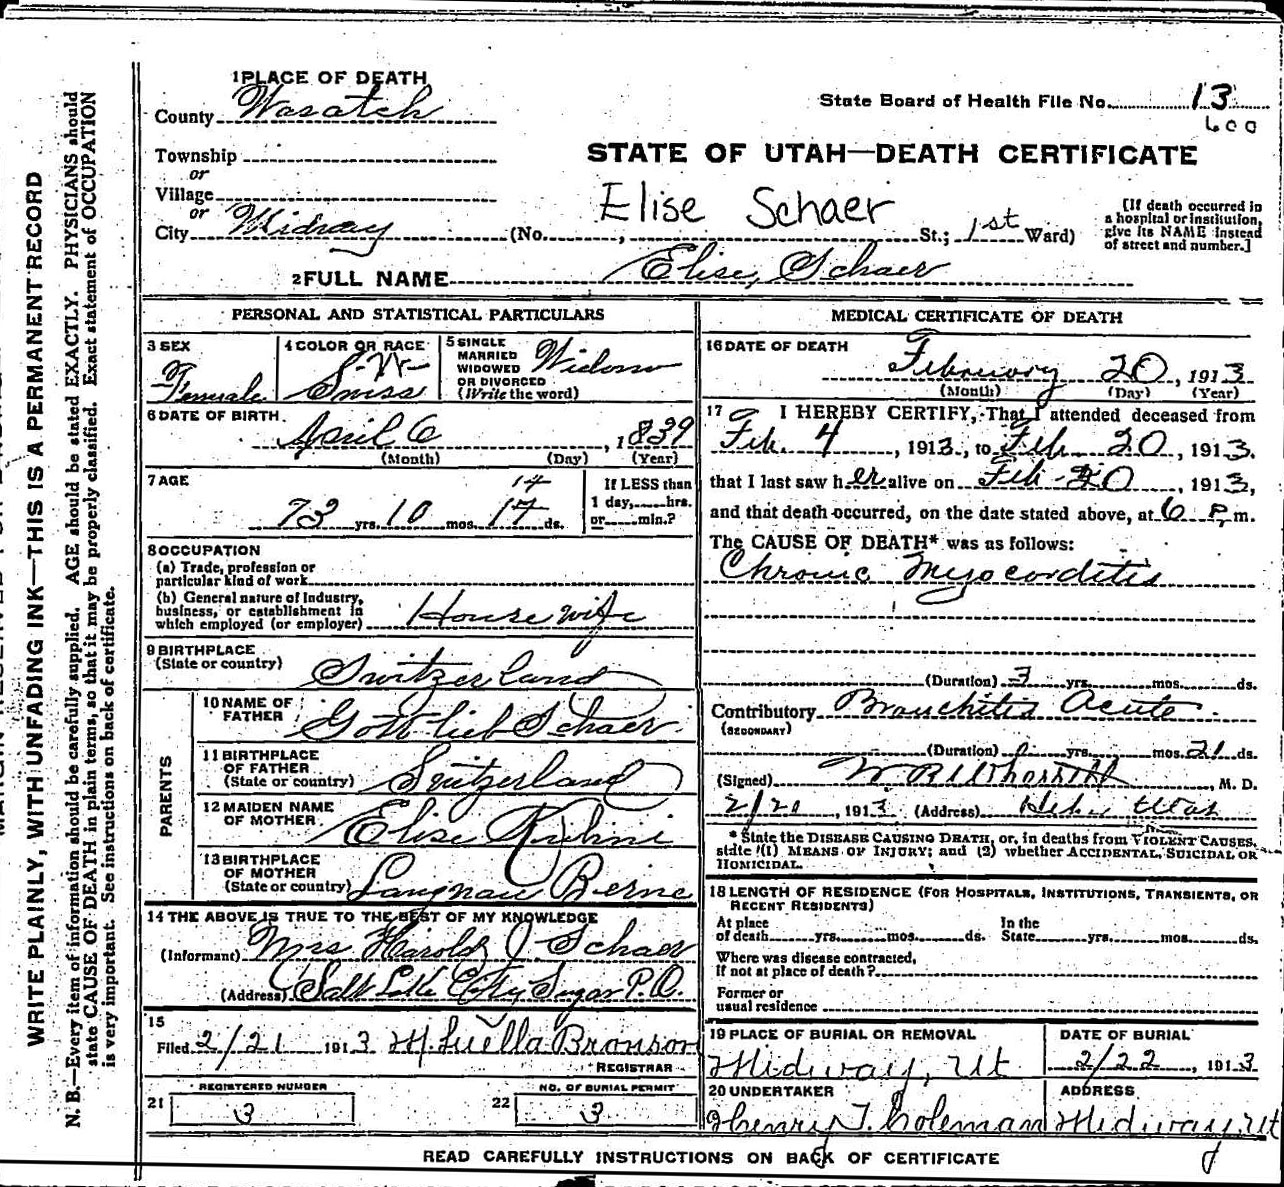 1 PLACE OF DEATH
County Wasatch
State Board of Health File No. 13
600
Township
or
Village
or
City Midway
STATE OF UTAH—DEATH CERTIFICATE
Elise Schaer
(No. , St.; 1st Ward)
[If death occurred in
a hospital or institution,
give its NAME instead
of street and number.]
2 FULL NAME Elise, Schaer
PERSONAL AND STATISTICAL PARTICULARS
3 SEX
Female
4 COLOR OR RACE
S-W-
Swiss
5 SINGLE
MARRIED
WIDOWED
OR DIVORCED
(Write the word)
Widow
6 DATE OF BIRTH
April 6, 1839
(Month) (Day) (Year)
7 AGE
14
73 yrs. 10 mos. 17 ds.
If LESS than
1 day, hrs.
or min.?
8 OCCUPATION
(a) Trade, profession or
particular kind of work
(b) General nature of industry,
business, or establishment in
which employed (or employer) House wife
9 BIRTHPLACE
(State or country)
Switzerland
PARENTS
10 NAME OF
FATHER
Gottlieb Schaer
11 BIRTHPLACE
OF FATHER
(State or country)
Switzerland
12 MAIDEN NAME
OF MOTHER
Elise
13 BIRTHPLACE
OF MOTHER
(State or country)
Langnau Berne
14 THE ABOVE IS TRUE TO THE BEST OF MY KNOWLEDGE
(Informant) Mrs Harold J. Schaer
(Address) Salt Lake City Sugar P.O.
15
Filed 2/21 1913 M Luella Bronson
REGISTRAR
REGISTERED NUMBER
21 3
NO. OF BURIAL PERMIT
22 3
MEDICAL CERTIFICATE OF DEATH
16 DATE OF DEATH
February 20, 1913
(Month) (Day) (Year)
17 I HEREBY CERTIFY, That I attended deceased from
Feb. 4, 1913, to Feb-20, 1913.
that I last saw h er alive on Feb-20, 1913,
and that death occurred, on the date stated above, at 6 P m.
The CAUSE OF DEATH* was as follows:
Chronic Myocorditis
(Duration) 3 yrs. mos. ds.
Contributory Bronchitis Acute.
(SECONDARY)
(Duration) 0 yrs. mos. 21 ds.
(Signed) , M. D.
2/20, 1913 (Address) Heber Utah
* State the DISEASE CAUSING DEATH, or, in deaths from VIOLENT CAUSES,
state (1) MEANS OF INJURY; and (2) whether ACCIDENTAL, SUICIDAL OR
HOMICIDAL.
18 LENGTH OF RESIDENCE (FOR HOSPITALS, INSTITUTIONS, TRANSIENTS, OR
RECENT RESIDENTS)
At place
of death yrs. mos. ds.
In the
State yrs. mos. ds.
Where was disease contracted,
If not at place of death?
Former or
usual residence
19 PLACE OF BURIAL OR REMOVAL
Midway, Ut
DATE OF BURIAL
2/22, 1913
20 UNDERTAKER
Henry T. Coleman
ADDRESS
Midway, Ut
READ CAREFULLY INSTRUCTIONS ON BACK OF CERTIFICATE
WRITE PLAINLY, WITH UNFADING INK—THIS IS A PERMANENT RECORD
N. B.—Every item of information should be carefully supplied. AGE should be stated EXACTLY. PHYSICIANS should
state CAUSE OF DEATH in plain terms, so that it may be properly classified. Exact statement of OCCUPATION
is very important. See instructions on back of certificate.